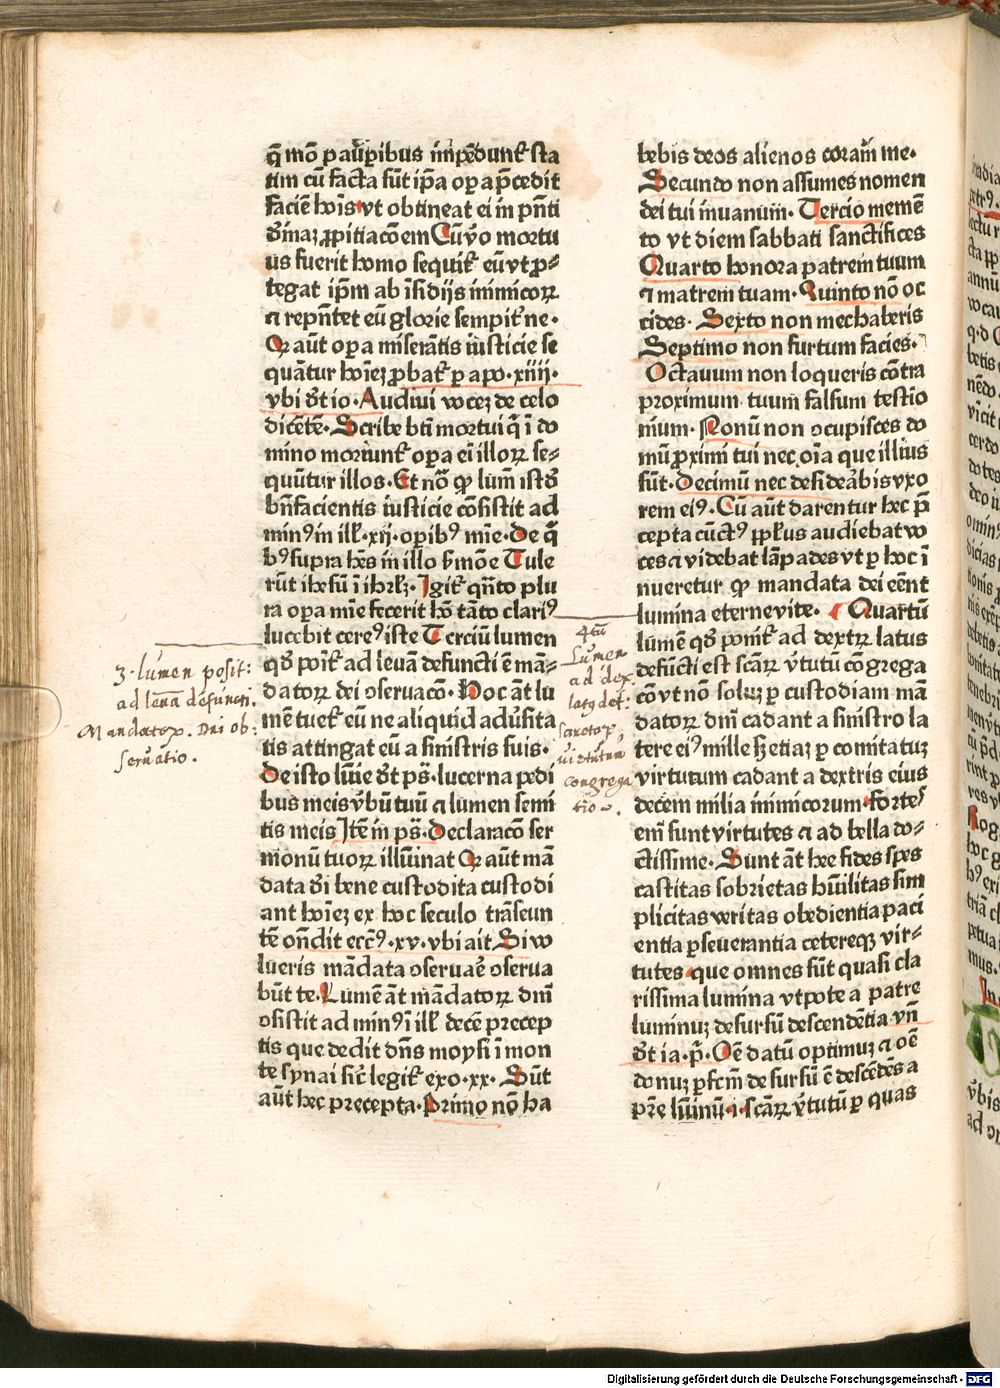 q̄ mō paup̲ibus īmpēdunt᷑ sta
tim cū facta sūt ip̄a op̲a p̄cedit
faciē hoīs vt obtineat ei in p̄nti
dīnaꝫ ꝓpitiacōem Cū v̊o mortu
us fuerit homo sequit᷑ eū vt p̲⸗
tegat ip̄m ab īsidijs inimicoꝝ
⁊ rep̄ntet eū glorie sempit᷑ne·
Qꝛ aūt op̲a miserātis iusticie se
quātur hoīeꝫ ꝓbat᷑ p̲ apo·xiiij·
vbi dr̄ io·Audiui voceꝫ de celo
dicētē·Scribe bt̄i mortui q̄ ī do
mino moriunt᷑ op̲a eī illoꝝ se⸗
quūtur illos·Et nō ꝙ lum̄ istd̄
bn̄facientis iusticie cōsistit ad
minꝰ in ill᷑·xij·op̲ibꝰ mīe·De q̄
bꝰ supra hēs in illo s̄mōe Tule
rūt ih̄esū ī ihrlꝫ·Igit᷑ qn̄to plu
ra op̲a mīe fecerit hō tāto clariꝰ
lucebit cereꝰ iste Terciū lumen
qd̄ poīt᷑ ad leuā defuncti ē mā⸗
datoꝝ dei oseruacō·Hoc āt lu
mē tuet᷑ eū ne aliquid adūsita
tis attingat eū a sinistris suis·
De isto lūīe dr̄ ps̄·lucerna pedi
bus meis v̄bū tuū ⁊ lumen semi
tis meis Itē in ps̄·Declaracō ser
monū tuoꝝ illūinat Qꝛ aūt mā
data dei bene custodita custodi
ant hoīeꝫ ex hoc seculo trāseun
tē on̄dit eccꝰ·xv·vbi ait Si vo
lueris mādata oseruaē oserua
būt te·Lumē āt mādatoꝝ dn̄i
osistit ad minꝰ ī ill᷑ decē precep
tis que dedit dn̄s moysi ī mon
te synai sic̄ legit᷑ exo·xx· Sūt
aūt hec precepta·Primo nō ha
bebis deos alienos coram me·
Secundo non assumes nomen
dei tui inuanum·Tercio memē
to vt diem sabbati sanctifices
Quarto honora patrem tuum
⁊ matrem tuam·Quinto nō oc
cides· Sexto non mechaberis
Septimo non furtum facies·
Octauum non loqueris cōtra
proximum tuum falsum testīo
nium·Nonū non ↄcupisces do
mū ꝓximi tui nec oīa que illius
sūt·Decimū nec desideābis vxo
rem eiꝰ·Cū aūt darentur hec p̄
cepta cūctꝰ pp̄lus audiebat vo
ces ⁊ videbat lāpades vt p̲ hoc ī
nueretur ꝙ mandata dei eēnt
lumina eterne vite· Quartū
lūmē qd̄ ponit᷑ ad dextrꝝ latus
defūcti est scāꝝ v̓tutū cōgrega
cō vt nō soluꝫ p̲ custodiam mā
datoꝝ dn̄i cadant a sinistro la
tere eiꝰ mille sꝫ etiaꝫ p̲ comitatuꝫ
virtutum cadant a dextris eius
decem milia inimicorum·fortes
eīn sunt virtutes ⁊ ad bella do⸗
ctissime·Sunt āt hee fides spes
castitas sobrietas hūilitas sim
plicitas veritas obedientia paci
entia p̲seuerantia cetereqꝫ vir⸗
tutes que omnes sūt quasi cla
rissima lumina vtpote a patre
luminuꝫ desursū descendētia vn̄
dr̄ ia·p̄·Oē datū optimuꝫ ⁊ oē
donuꝫ p̲fcm̄ de sursū ē descēdēs a
pr̄e lūinū·i·scāꝝ v̓tutū p̲ quas
3· lumen posit:
ad leuā defuncti.
Mandatoꝝ. Dni ob:
seruatio.
4tū
Lumen
ad dex.
latꝯ def:
sanctoꝝ,
virtutum
congrega
tio.
Digitalisierung gefördert durch die Deutsche Forschungsgemeinschaft - DFG